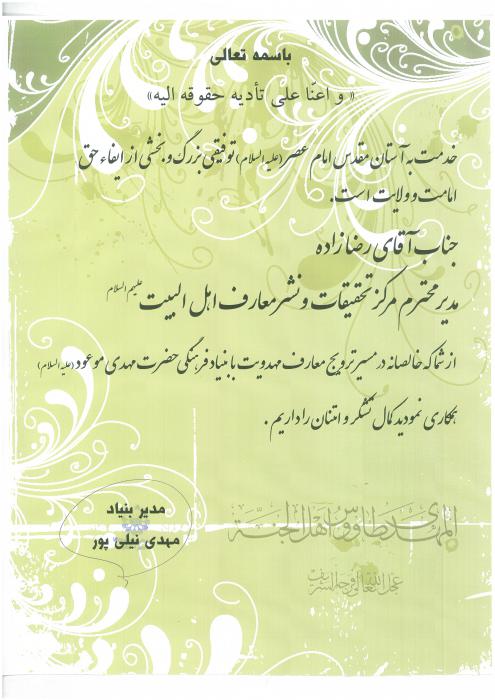 باسمه تعالی
« و اعنّا علی تأدیه حقوقه الیه»
خدمت به آستان مقدس امام عصر (علیه السلام) توفیقی بزرگ و بخشی از ایفاء حق
امامت و ولایت است.
جناب آقای رضازاده
مدیر محترم مرکز تحقیقات و نشر معارف اهل البیت علیهم السلام
از شما که خالصانه در مسیر ترویج معارف مهدویت با بنیاد فرهنگی حضرت مهدی موعود (علیه السلام)
همکاری نمودید کمال تشکر و امتنان را داریم .
المهدی طاووس اهل الجنة
عجل الله تعالی فرجه الشریف
مدیر بنیاد
مهدی نیلی پور